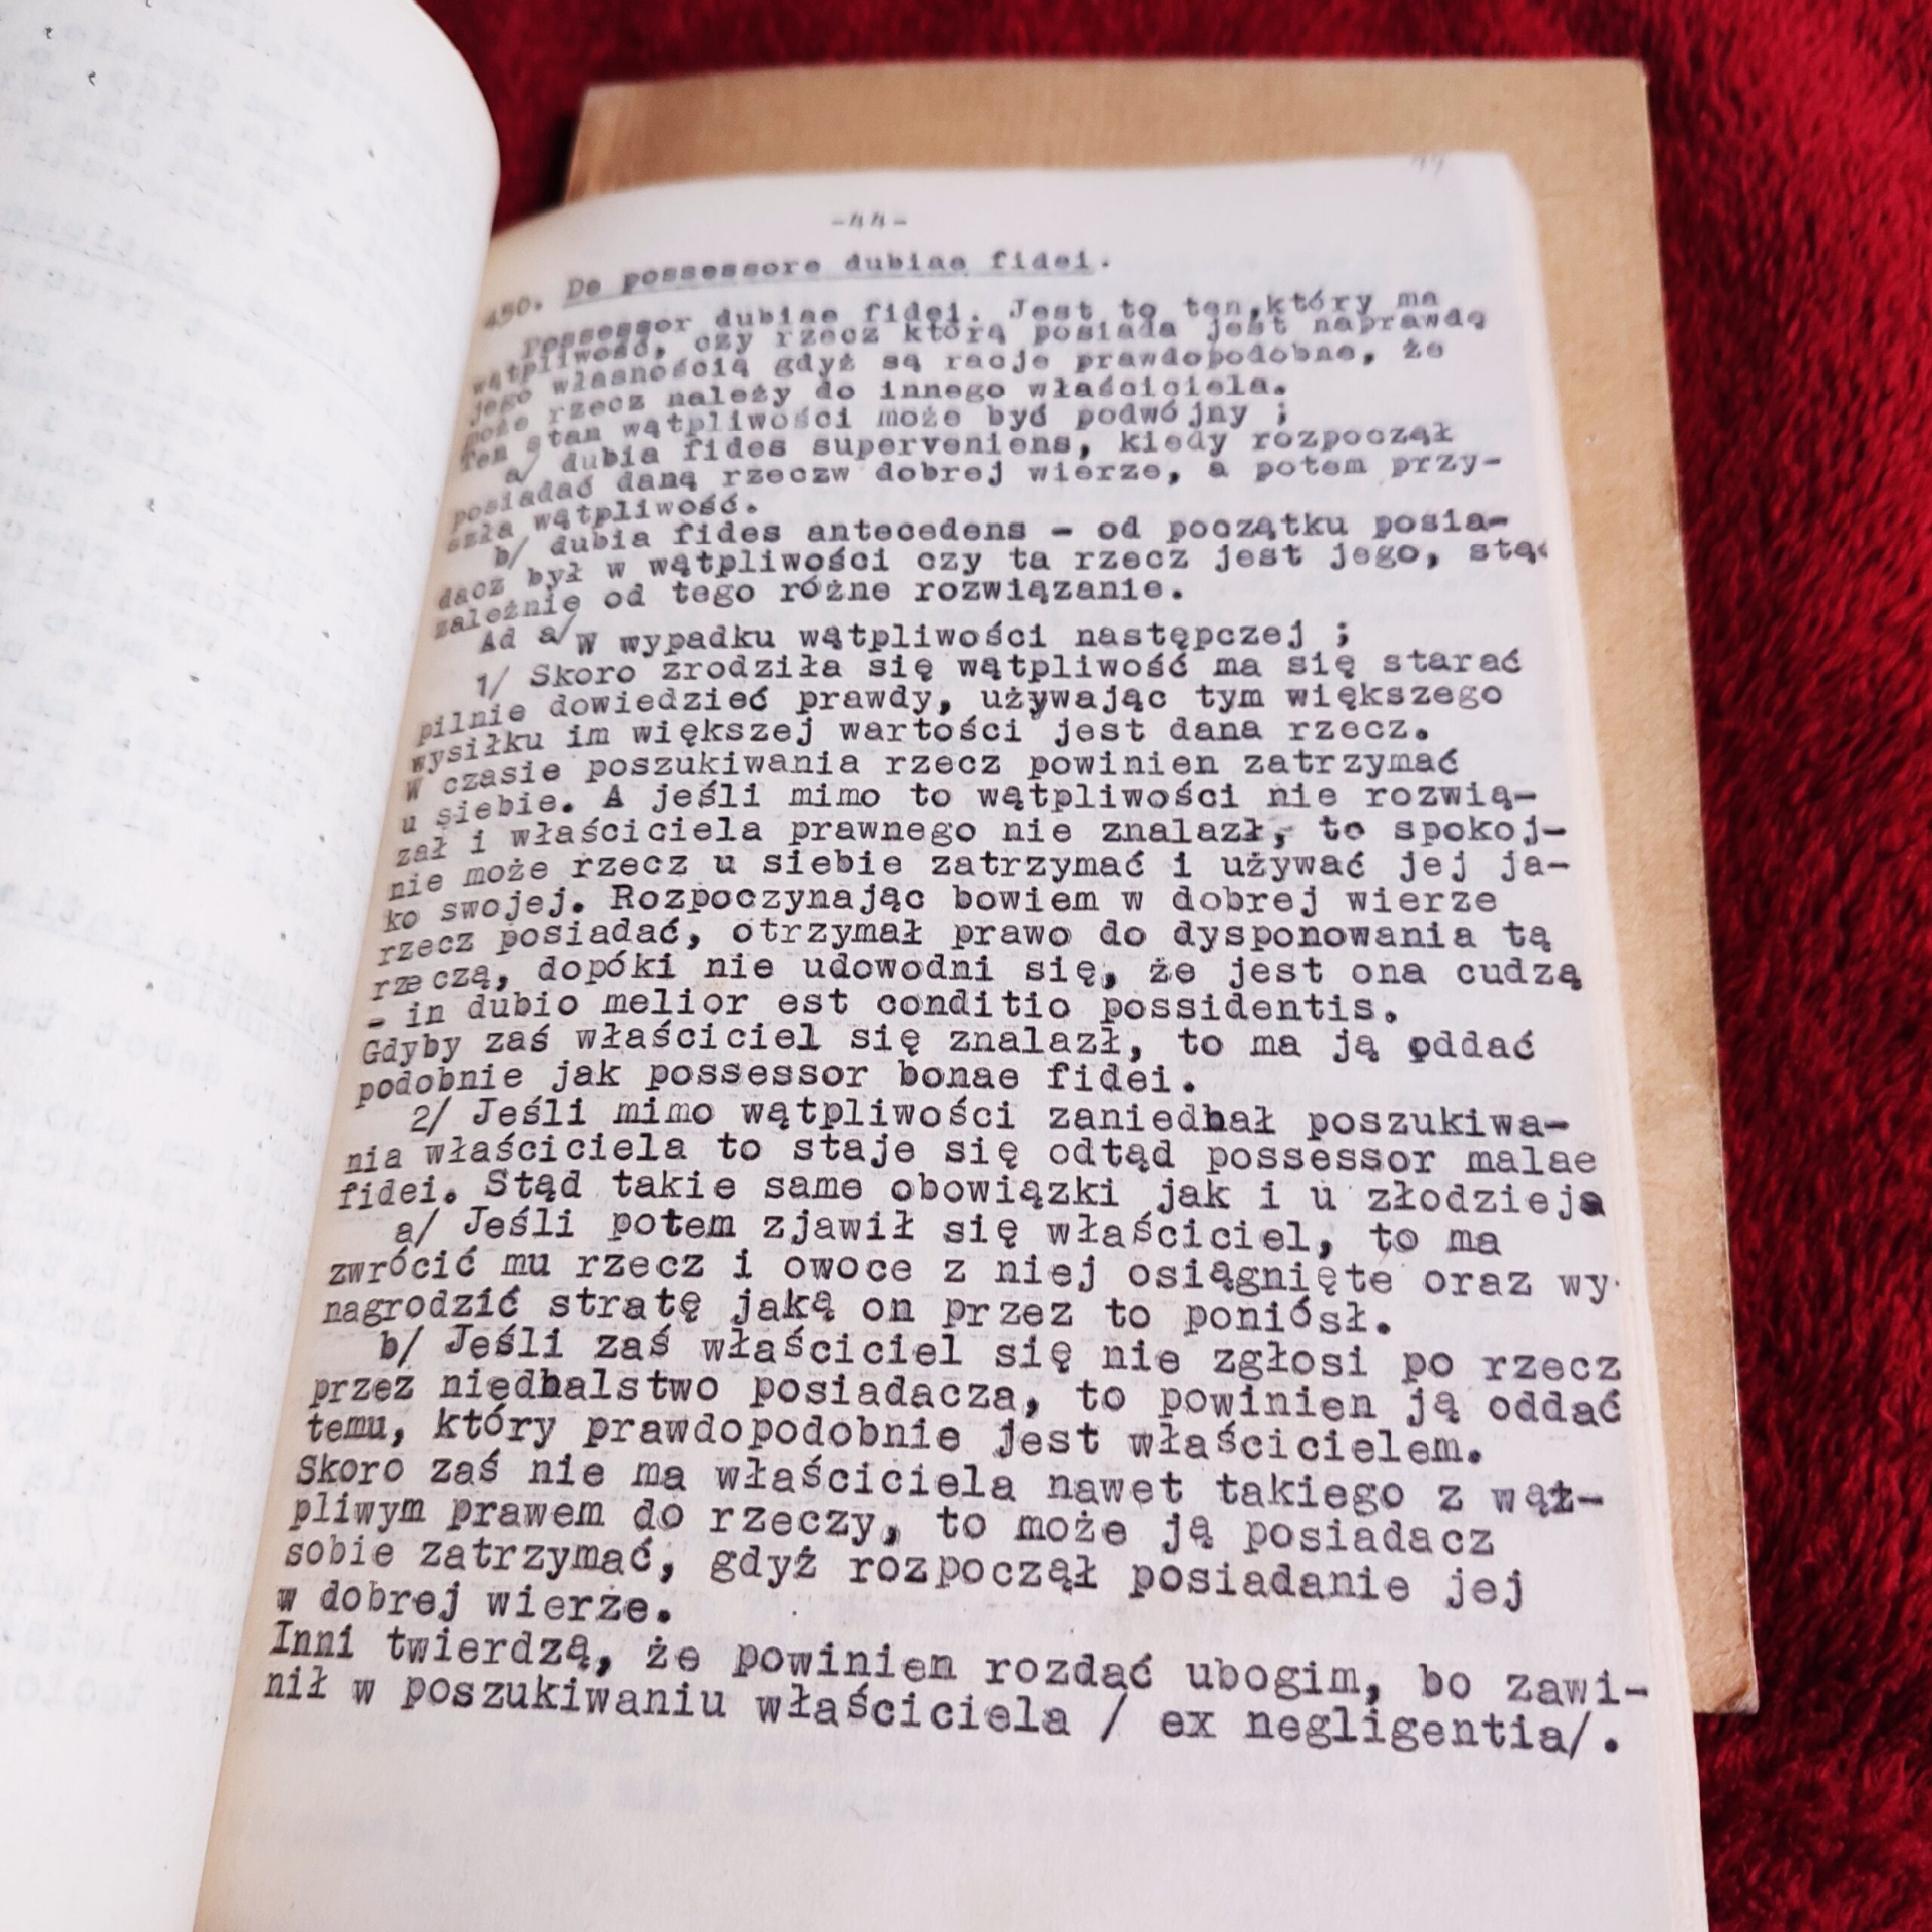 -44-
450. De possessore dubiae fidei.
Possessor dubiae fidei. Jest to ten,który ma
wątpliwość, czy rzecz którą posiada jest naprawdę
jego własnością gdyż są racje prawdopodobne, że
może rzecz należy do innego właściciela.
Ten stan wątpliwości może być podwójny ;
a/ dubia fides superveniens, kiedy rozpoczął
posiadać daną rzeczw dobrej wierze, a potem przy-
szła wątpliwość.
b/ dubia fides antecedens - od początku posia-
dacz był w wątpliwości czy ta rzecz jest jego, stąd
zależnie od tego różne rozwiązanie.
Ad a/ W wypadku wątpliwości następczej ;
1/ Skoro zrodziła się wątpliwość ma się starać
pilnie dowiedzieć prawdy, używając tym większego
wysiłku im większej wartości jest dana rzecz.
W czasie poszukiwania rzecz powinien zatrzymać
u siebie. A jeśli mimo to wątpliwości nie rozwią-
zał i właściciela prawnego nie znalazł, to spokoj-
nie może rzecz u siebie zatrzymać i używać jej ja-
ko swojej. Rozpoczynając bowiem w dobrej wierze
rzecz posiadać, otrzymał prawo do dysponowania tą
rzeczą, dopóki nie udowodni się, że jest ona cudzą
- in dubio melior est conditio possidentis.
Gdyby zaś właściciel się znalazł, to ma ją oddać
podobnie jak possessor bonae fidei.
2/ Jeśli mimo wątpliwości zaniedbał poszukiwa-
nia właściciela to staje się odtąd possessor malae
fidei. Stąd takie same obowiązki jak i u złodzieja
a/ Jeśli potem zjawił się właściciel, to ma
zwrócić mu rzecz i owoce z niej osiągnięte oraz wy-
nagrodzić stratę jaką on przez to poniósł.
b/ Jeśli zaś właściciel się nie zgłosi po rzecz
przez niedbalstwo posiadacza, to powinien ją oddać
temu, który prawdopodobnie jest właścicielem.
Skoro zaś nie ma właściciela nawet takiego z wąt-
pliwym prawem do rzeczy, to może ją posiadacz
sobie zatrzymać, gdyż rozpoczął posiadanie jej
w dobrej wierze.
Inni twierdzą, że powinien rozdać ubogim, bo zawi-
nił w poszukiwaniu właściciela / ex negligentia/.